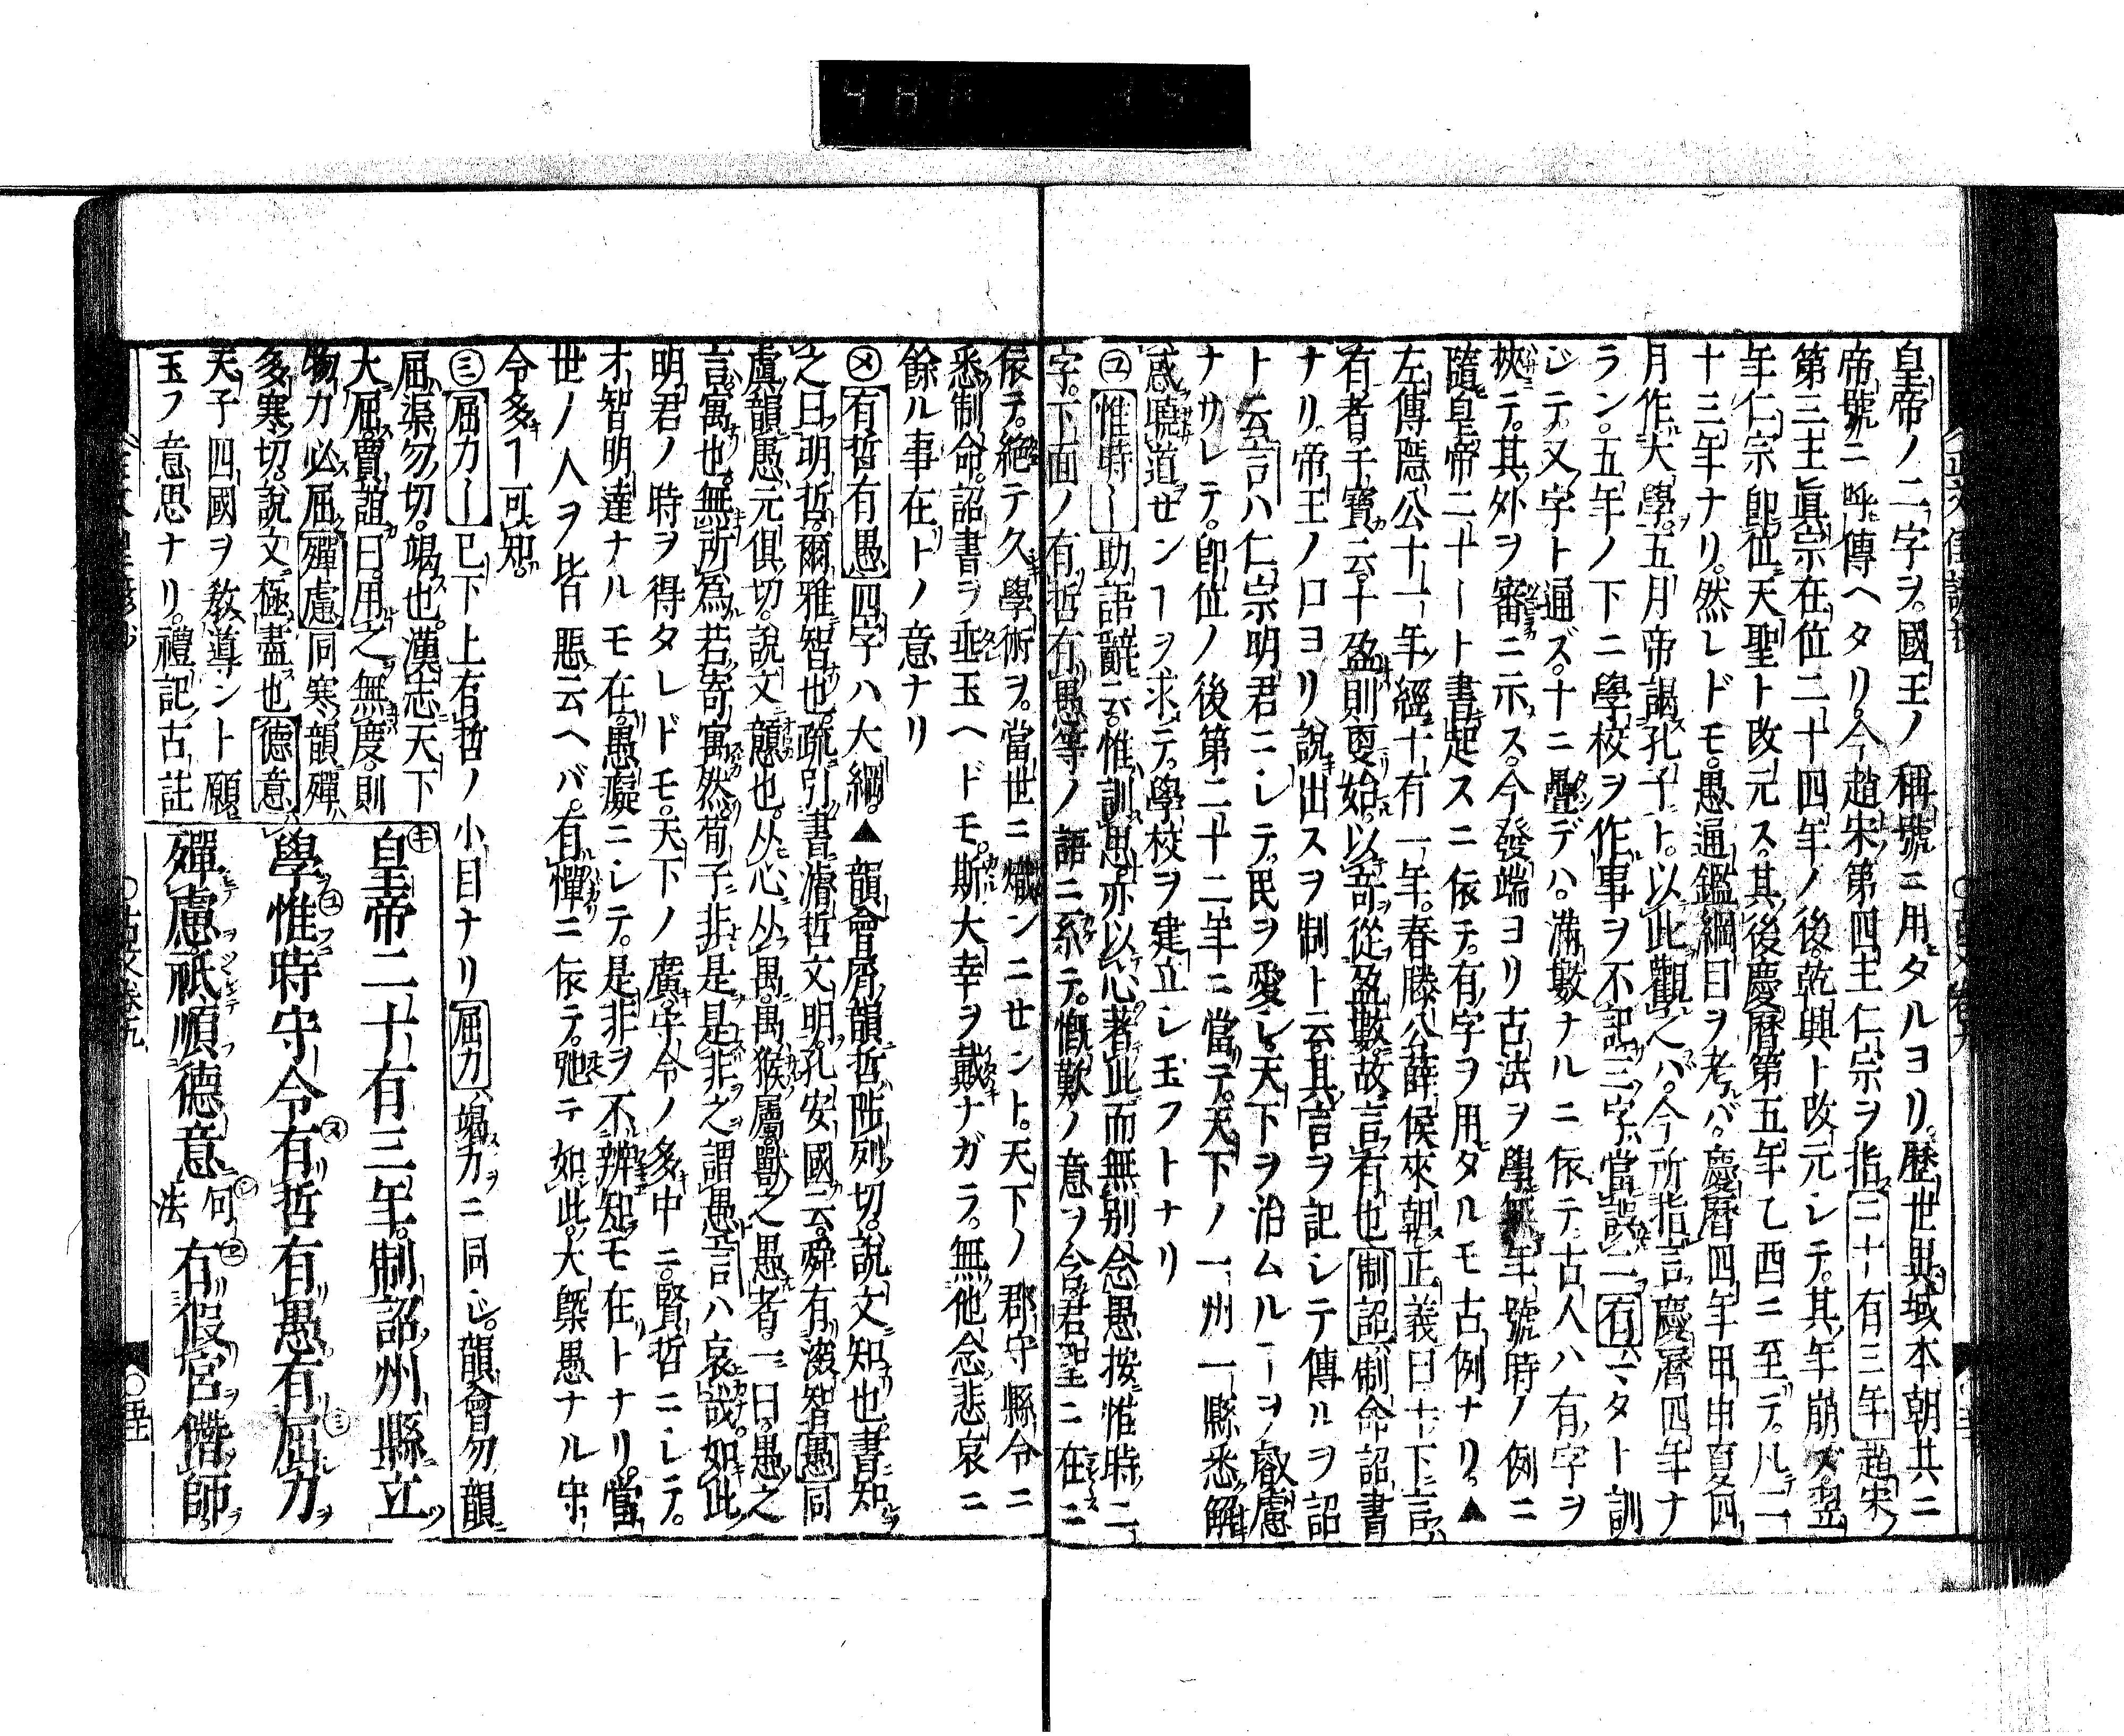 皇帝ノ二字ヲ。國王ノ稱號ニ用タルヨリ。歷世異域本朝共ニ
帝號ニ呼傳ヘタリ。今趙宋第四主仁宗ヲ指二十有三年趙宋ノ
第三主眞宗在位二十四年ノ後。乾興ト改元シテ。其年崩ズ翌
年仁宗卽位。天聖ト改元ス。其後慶曆第五年乙酉ニ至デ。凡二
十三年ナリ。然レドモ。愚通鑑綱目ヲ考バ。慶曆四年甲申夏四
月作大學。五月帝謁孔子ト。以此觀之バ。今所指言慶曆四年ナ
ラン。五年ノ下ニ學校ヲ作事ヲ不記。三字當誤二有マタト訓
ジテ。又字ト通ズ。十ニ疊デハ。滿數ナルニ依テ。古人ハ有字ヲ
挾テ。其外ヲ審ニ示ス。今發端ヨリ古法ヲ學無年號時ノ例ニ
隨皇帝二十ート書起スニ依テ。有字ヲ用タルモ古例ナリ。▲
左傳隱公十一年。經十有一年。春滕公薛侯來朝。正義曰十下言
有者。干寶云。十盈則更始。以奇從盈數。故言有也制詔制命詔書
ナリ。帝王ノ口ヨリ說出スヲ制ト云。其言ヲ記シテ傳ルヲ詔
ト云言ハ仁宗明君ニシテ。民ヲ愛シ。天下ヲ治ムルヿヲ。叡慮
ナサレテ。卽位ノ後第二十二年ニ當テ。天下ノ一州一縣悉解
惑曉道センヿヲ求テ。學校ヲ建立シ玉フトナリ
ユ惟時ー助語辭云。惟訓思。亦以心著此而無別念愚按惟時二
字。下面ノ有哲有愚等ノ語ニ系テ。慨歎ノ意ヲ含。君聖ニ在ニ
依テ。絕テ久學術ヲ。當世ニ熾ンニセント。天下ノ郡守縣令ニ
悉制命。詔書ヲ垂玉ヘドモ。斯大幸ヲ戴ナガラ。無他念悲哀ニ
餘ル事在トノ意ナリ
メ有哲有愚四字ハ大綱。▲韻會屑韻哲陟列切。說文知也。書知
之曰明哲。爾雅智也。疏引書濬哲文明。孔安國云。舜有深智愚同
虞韻愚元俱切。說文戇也。从心从禺。禺猴屬。獸之愚者。一曰。愚之
言寓也。無所爲若寄寓然。荀子非是是非之謂愚言ハ哀哉。如此
明君ノ時ヲ得タレドモ。天下ノ廣。守令ノ多中ニ。賢哲ニシテ。
才智明達ナルモ在。愚癡ニシテ。是非ヲ不辨知モ在トナリ。當
世ノ人ヲ皆惡云ヘバ。有憚ニ依テ。弛テ如此。大槩愚ナル守
令多ヿ可知。
ミ屈力ー已下上有哲ノ小目ナリ屈力竭力ニ同ジ。韻會勿韻
屈渠勿切。竭也。漢志天下
大屈。賈誼曰。用之無度。則
物力必屈殫慮同寒韻殫
多寒切。說文極盡也德意
天子四國ヲ敎導ント願
玉フ意思ナリ。禮記古註
キ皇帝二十有三年。制詔州縣立
學惟時守令有哲有愚有屈力
殫慮祗順德意何法有假宮僭師